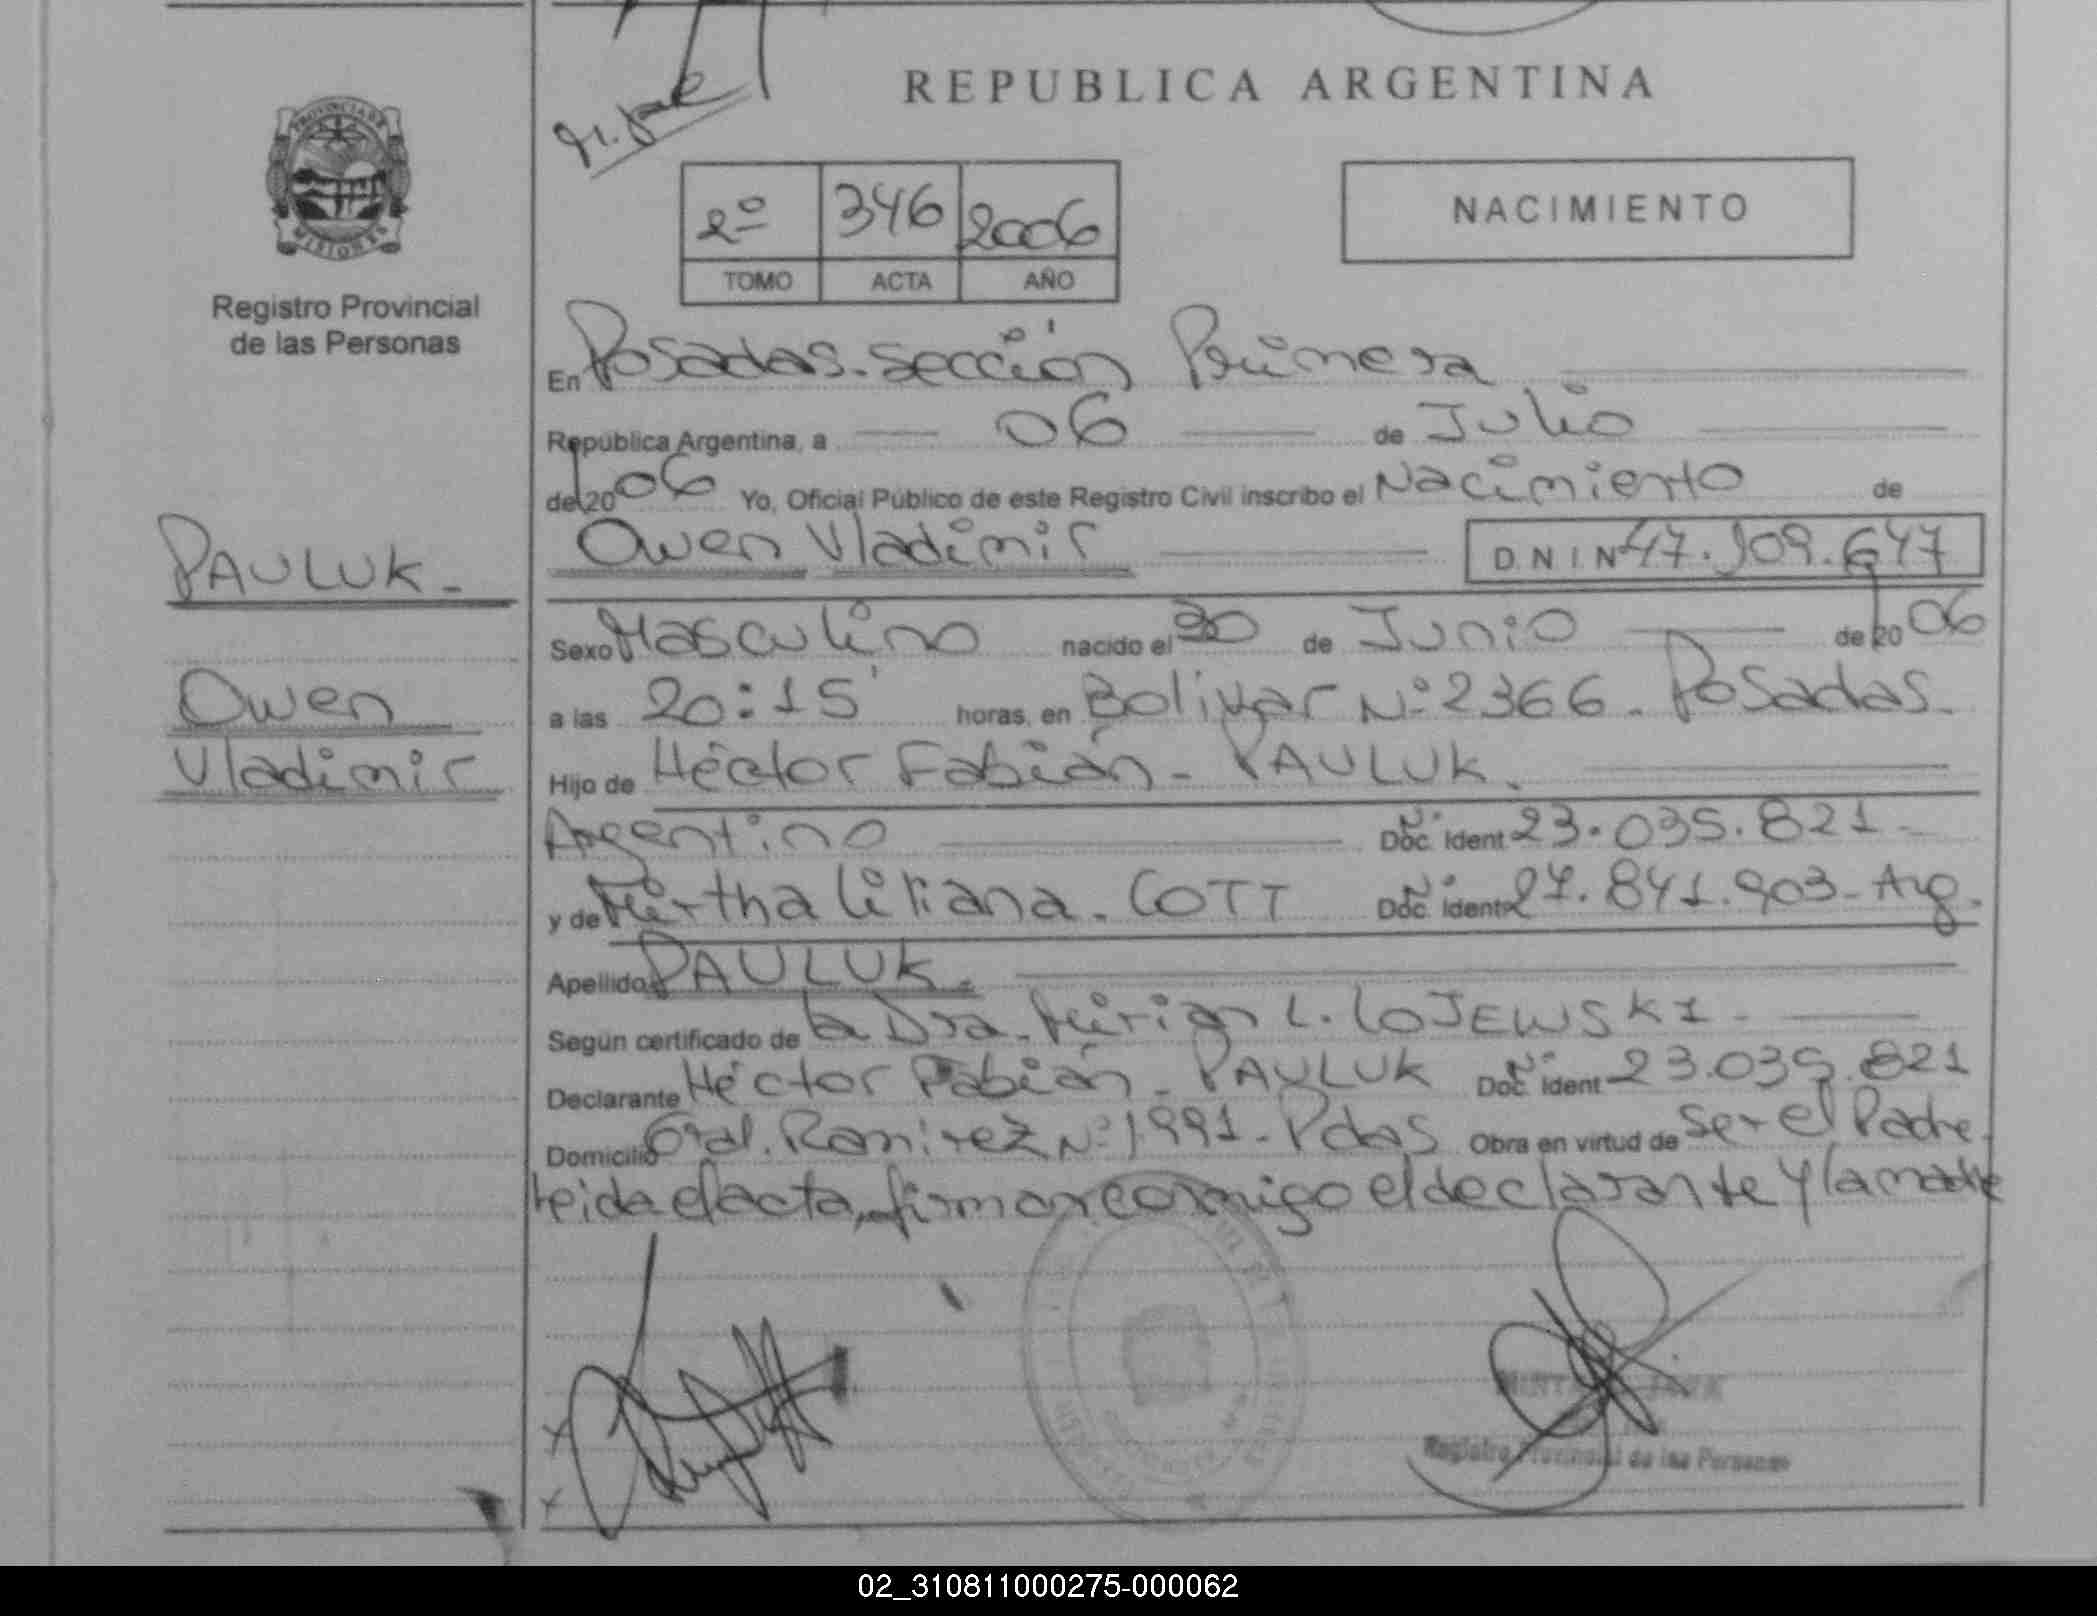 REPUBLICA ARGENTINA
PROVINCIA DE
MISIONES
Registro Provincial
de las Personas
2º 346 2006
TOMO ACTA AÑO
NACIMIENTO
En Posadas. Sección Primera
República Argentina, a 06 de Julio
de 2006 Yo, Oficial Público de este Registro Civil inscribo el Nacimiento de
Owen Vladimir D.N.I.Nº 47.909.647
PAULUK.-
Owen
Vladimir
Sexo Masculino nacido el 30 de Junio de 2006
a las 20:15' horas, en Bolivar Nº 2366. Posadas.
Hijo de Héctor Fabián - PAULUK.
Argentino Nº Doc. Ident 23.035.821-
y de Mirtha Liliana. COTT Nº Doc. Ident 27.841.903- Arg.
Apellido PAULUK.
Según certificado de la Dra. Mirian L. LOJEWSKI-
Declarante Héctor Fabián - PAULUK Nº Doc. Ident 23.035.821
Domicilio Gral. Ramirez Nº 1991- Pdas Obra en virtud de Ser el Padre.
Leida el acta, firman conmigo el declarante y la madre
Registro Provincial de las Personas
02_310811000275-000062